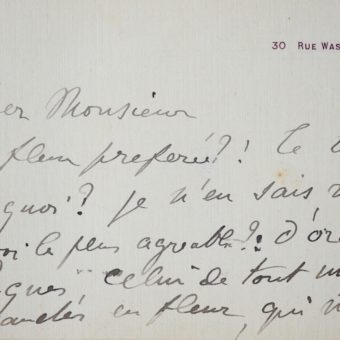 30 RUE WAS
er Monsieur
fleur preferée?! Le
quoi? je n'en sais
oi le plus agreable?: d'or
ques celui de tout
en fleur, qui